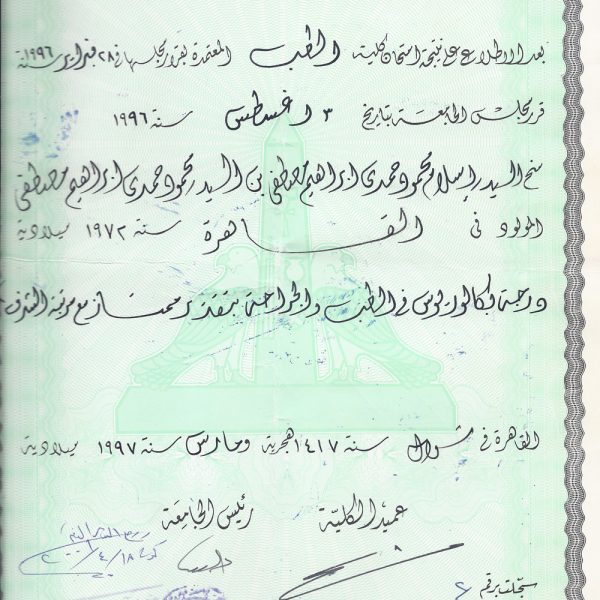 بعد الاطلاع على نتيجة امتحان كلية الطب المعتمدة بقرار مجلسها في ٢٨ فبراير سنة ١٩٩٦
قرر مجلس الجامعة بتاريخ ٣١ أغسطس سنة ١٩٩٦
منح السيد إسلام محمود حمدى إبراهيم مصطفى بن السيد محمود حمدى إبراهيم مصطفى
المولود فى القاهرة سنة ١٩٧٢ ميلادية
درجة بكالوريوس فى الطب والجراحة بتقدير ممتاز مع مرتبة الشرف
القاهرة فى شوال سنة ١٤١٧ هجرية ومارس سنة ١٩٩٧ ميلادية
عميد الكلية
رئيس الجامعة
سجلت برقم